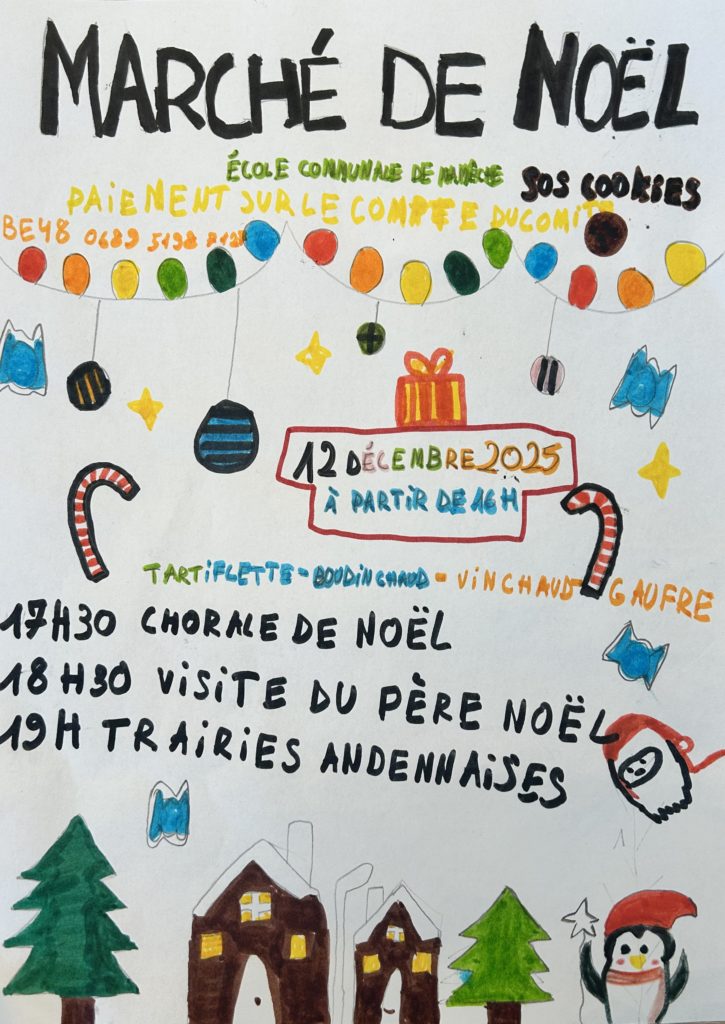 MARCHÉ DE NOËL
ÉCOLE COMMUNALE DE NAMÊCHE
SOS COOKIES
PAIENENT SUR LE COMPTE DU COMITÉ
BE48 0689 5198
12 DÉCEMBRE 2025
À PARTIR DE 16H
TARTIFLETTE - BOUDIN CHAUD - VIN CHAUD - GAUFRE
17H30 CHORALE DE NOËL
18H30 VISITE DU PÈRE NOËL
19H TRAIRIES ANDENNAISES